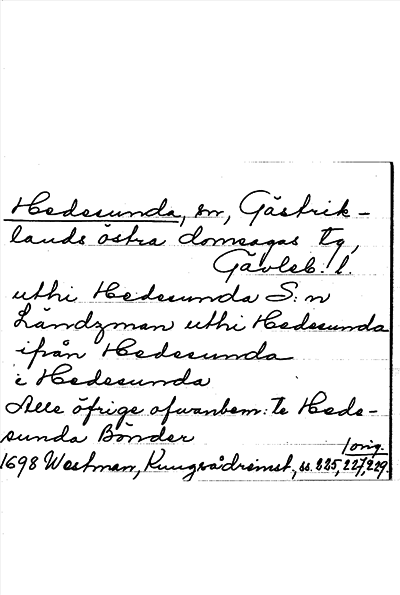 Hedesunda, sn, Gästrik-
lands östra domsagas tg,
Gävleb. l.
uthi Hedesunda S:n
Ländzman uthi Hedesunda
ifrån Hedesunda
i Hedesunda
Alle öfrige ofwanbem:te Hede-
sunda Bönder
1 orig.
1698 Westman, Kungsådreinst., ss. 225, 227, 229.